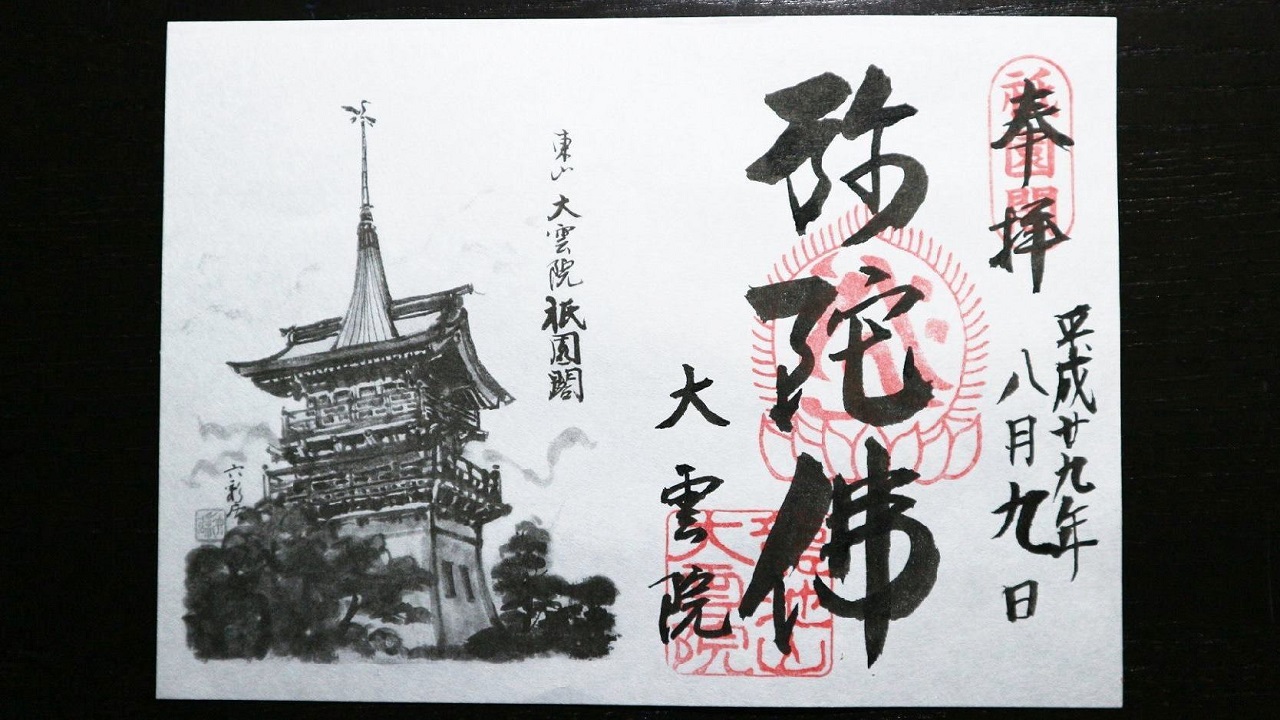 奉拝
祇園閣
平成廿九年
八月九日
弥陀佛
大雲院
大雲院
東山大雲院祇園閣
六彩